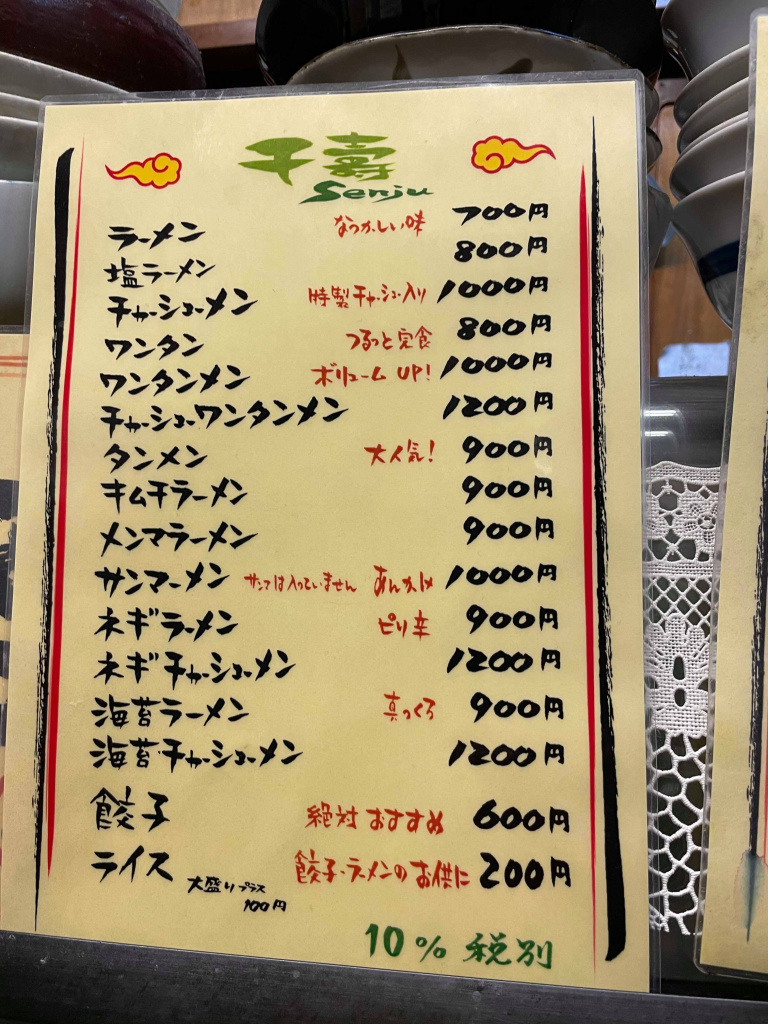 千壽
Senju
ラーメン なつかしい味 700円
塩ラーメン 800円
チャーシューメン 特製チャーシュー入り 1000円
ワンタン つるっと完食 800円
ワンタンメン ボリューム UP! 1000円
チャーシューワンタンメン 1200円
タンメン 大人気! 900円
キムチラーメン 900円
メンマラーメン 900円
サンマーメン サンマは入っていません あんかけ 1000円
ネギラーメン ピリ辛 900円
ネギチャーシューメン 1200円
海苔ラーメン 真っくろ 900円
海苔チャーシューメン 1200円
餃子 絶対おすすめ 600円
ライス 餃子・ラーメンのお供に 200円
大盛りプラス
100円
10% 税別